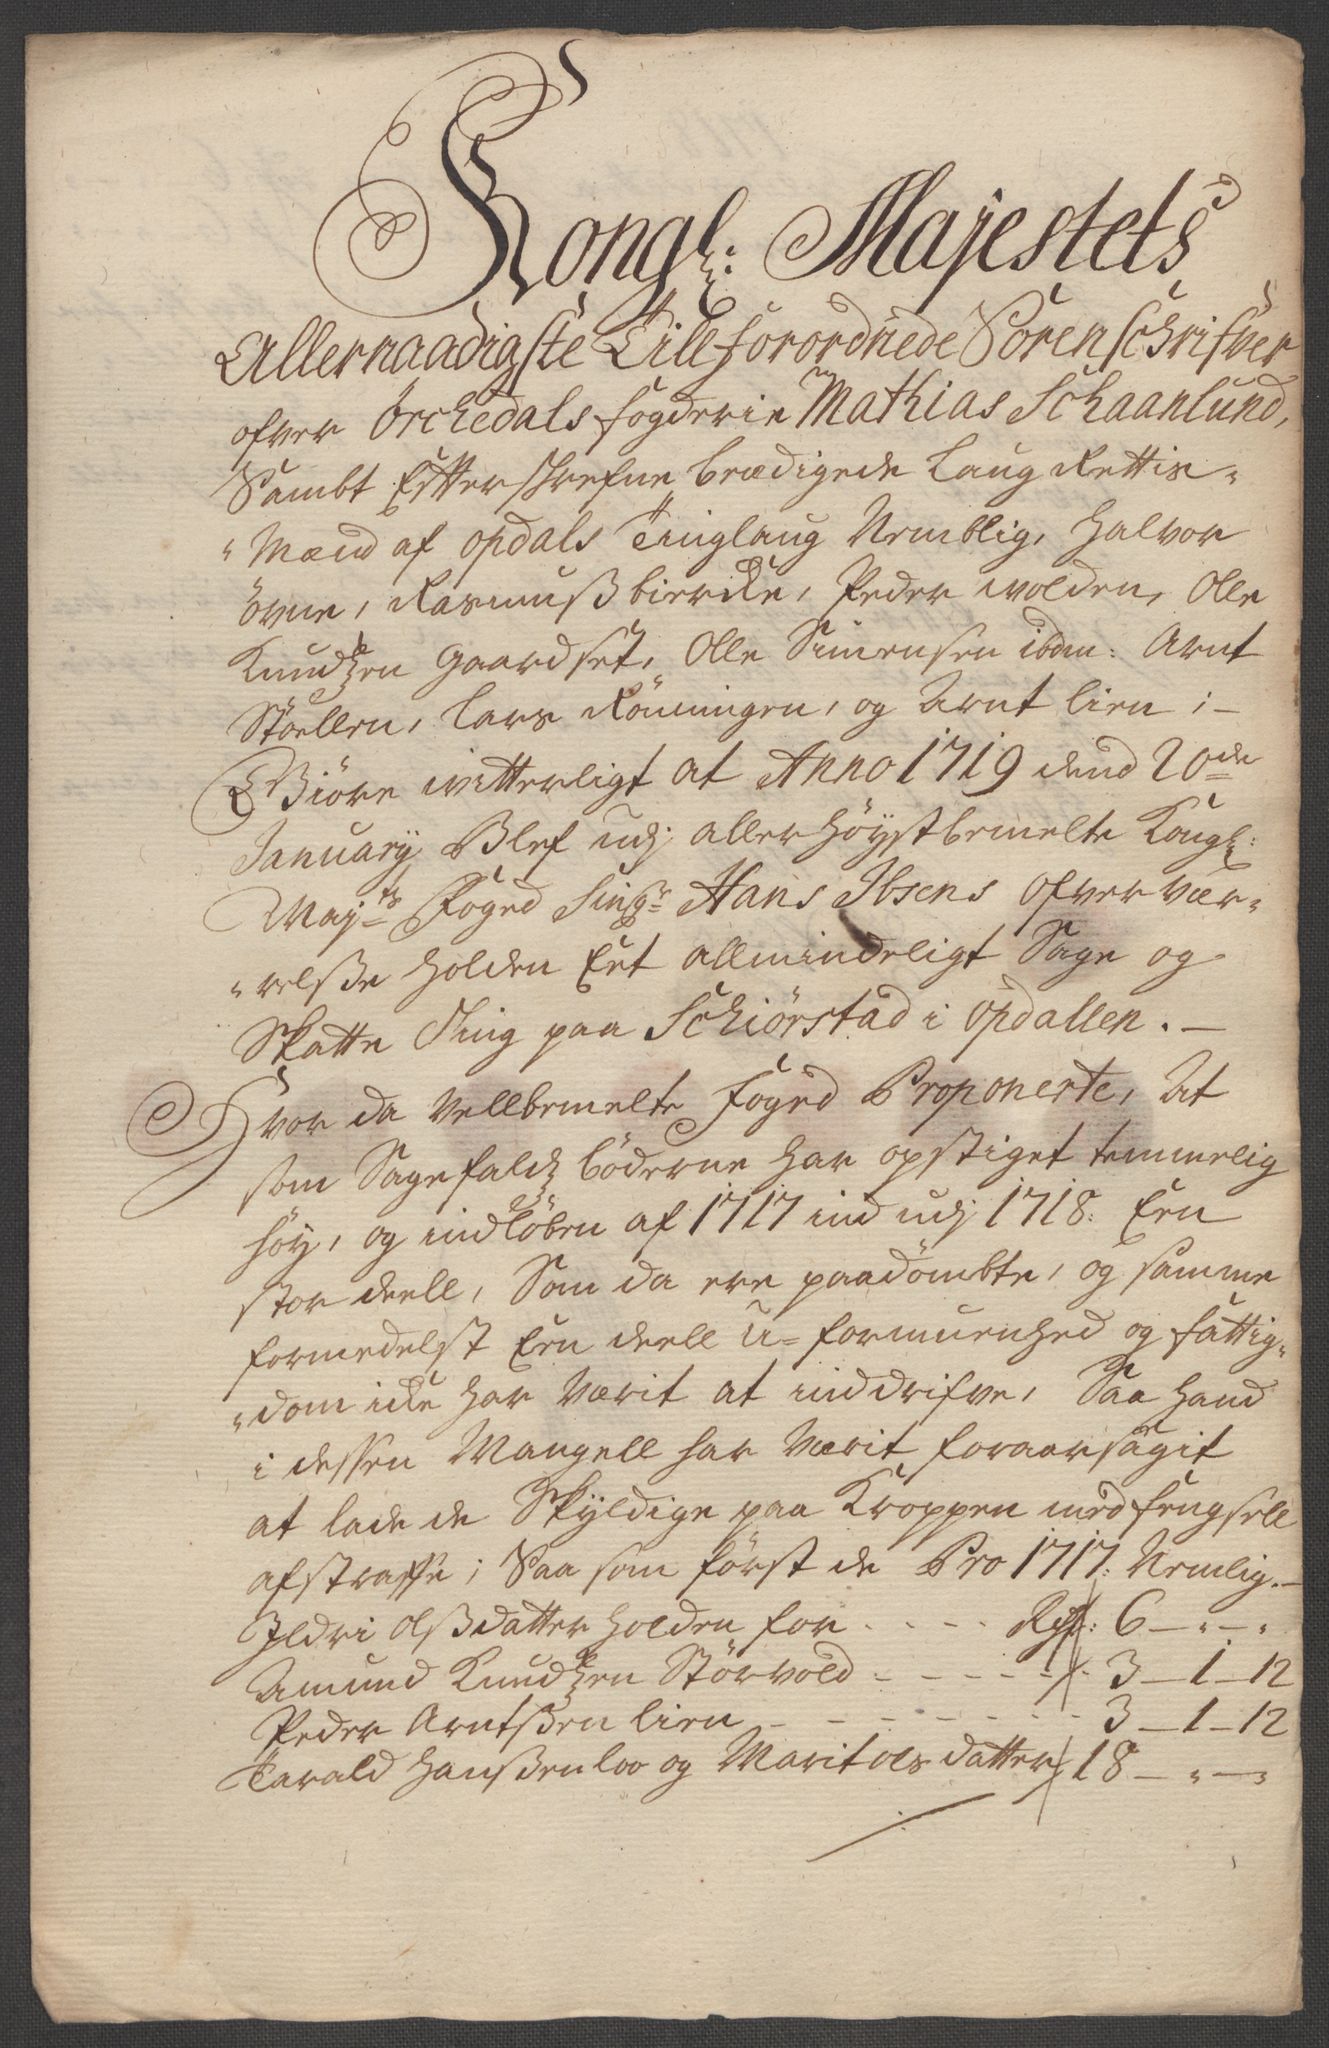 Kongl: Majestets
Allernaadigste Till forordnede Sorenschrifver
ofver Örchedals fogderie Mathias Schaanlund,
Sambt Efterschrefne bædigede Laug Rettis-
Mænd af Opdals Tinglaug Nemblig, Halvor
Övne, Rasmuß bierke, Peder wolden, Olle
Knudtzen Gaardset, Olle Simensen ibdm: Arnt
Stöellen, Lars Rönningen, og Arnt lien ;-
Giöre witterligt at Anno 1719 dend 20de
January Blef udj allerhöystbemelte Kongl:
Mayts Foged Sinhr Hans Ibsens ofverVær-
relße holden Eet allmindeligt Sage og
Skatte Ting paa Schiörstad i Opdallen. -
Hvor da Vellbemelte Foged Proponerte, At
som Sagefaldz böderne har opstiget temmelig
höy, og indlöben af 1717 ind udj 1718: Een
stor deell, Som da ere paadömbte, og samme
formedelst Een deell U=formuenhed og fattig-
dom icke har Værit at inddrifve, Saa hand
i dessen Mangell har Værit foraarsagit
at lade de Skyldige paa Kroppen med fengsell
afstraffe; Saa som först de Pro 1717: Nemlig. -
Ildri Olßdatter holden for - - - - Rdr: 6 - " - "
Amund Knudtzen Störvold - - - - - 3 - 1 - 12
Peder Arntßen lien - - - - - - 3 - 1 - 12
Tarald Hanßen loo og Marit olsdatter 18 - " - "